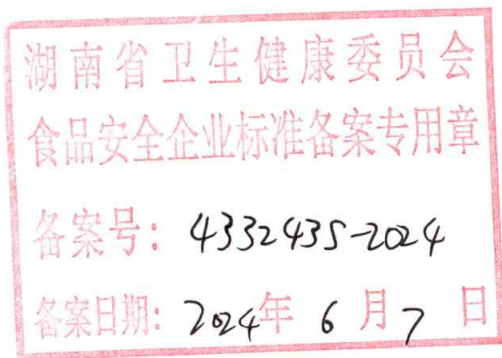 湖南省卫生健康委员会
食品安全企业标准备案专用章
备案号：4332435-2024
备案日期：2024年6月7日